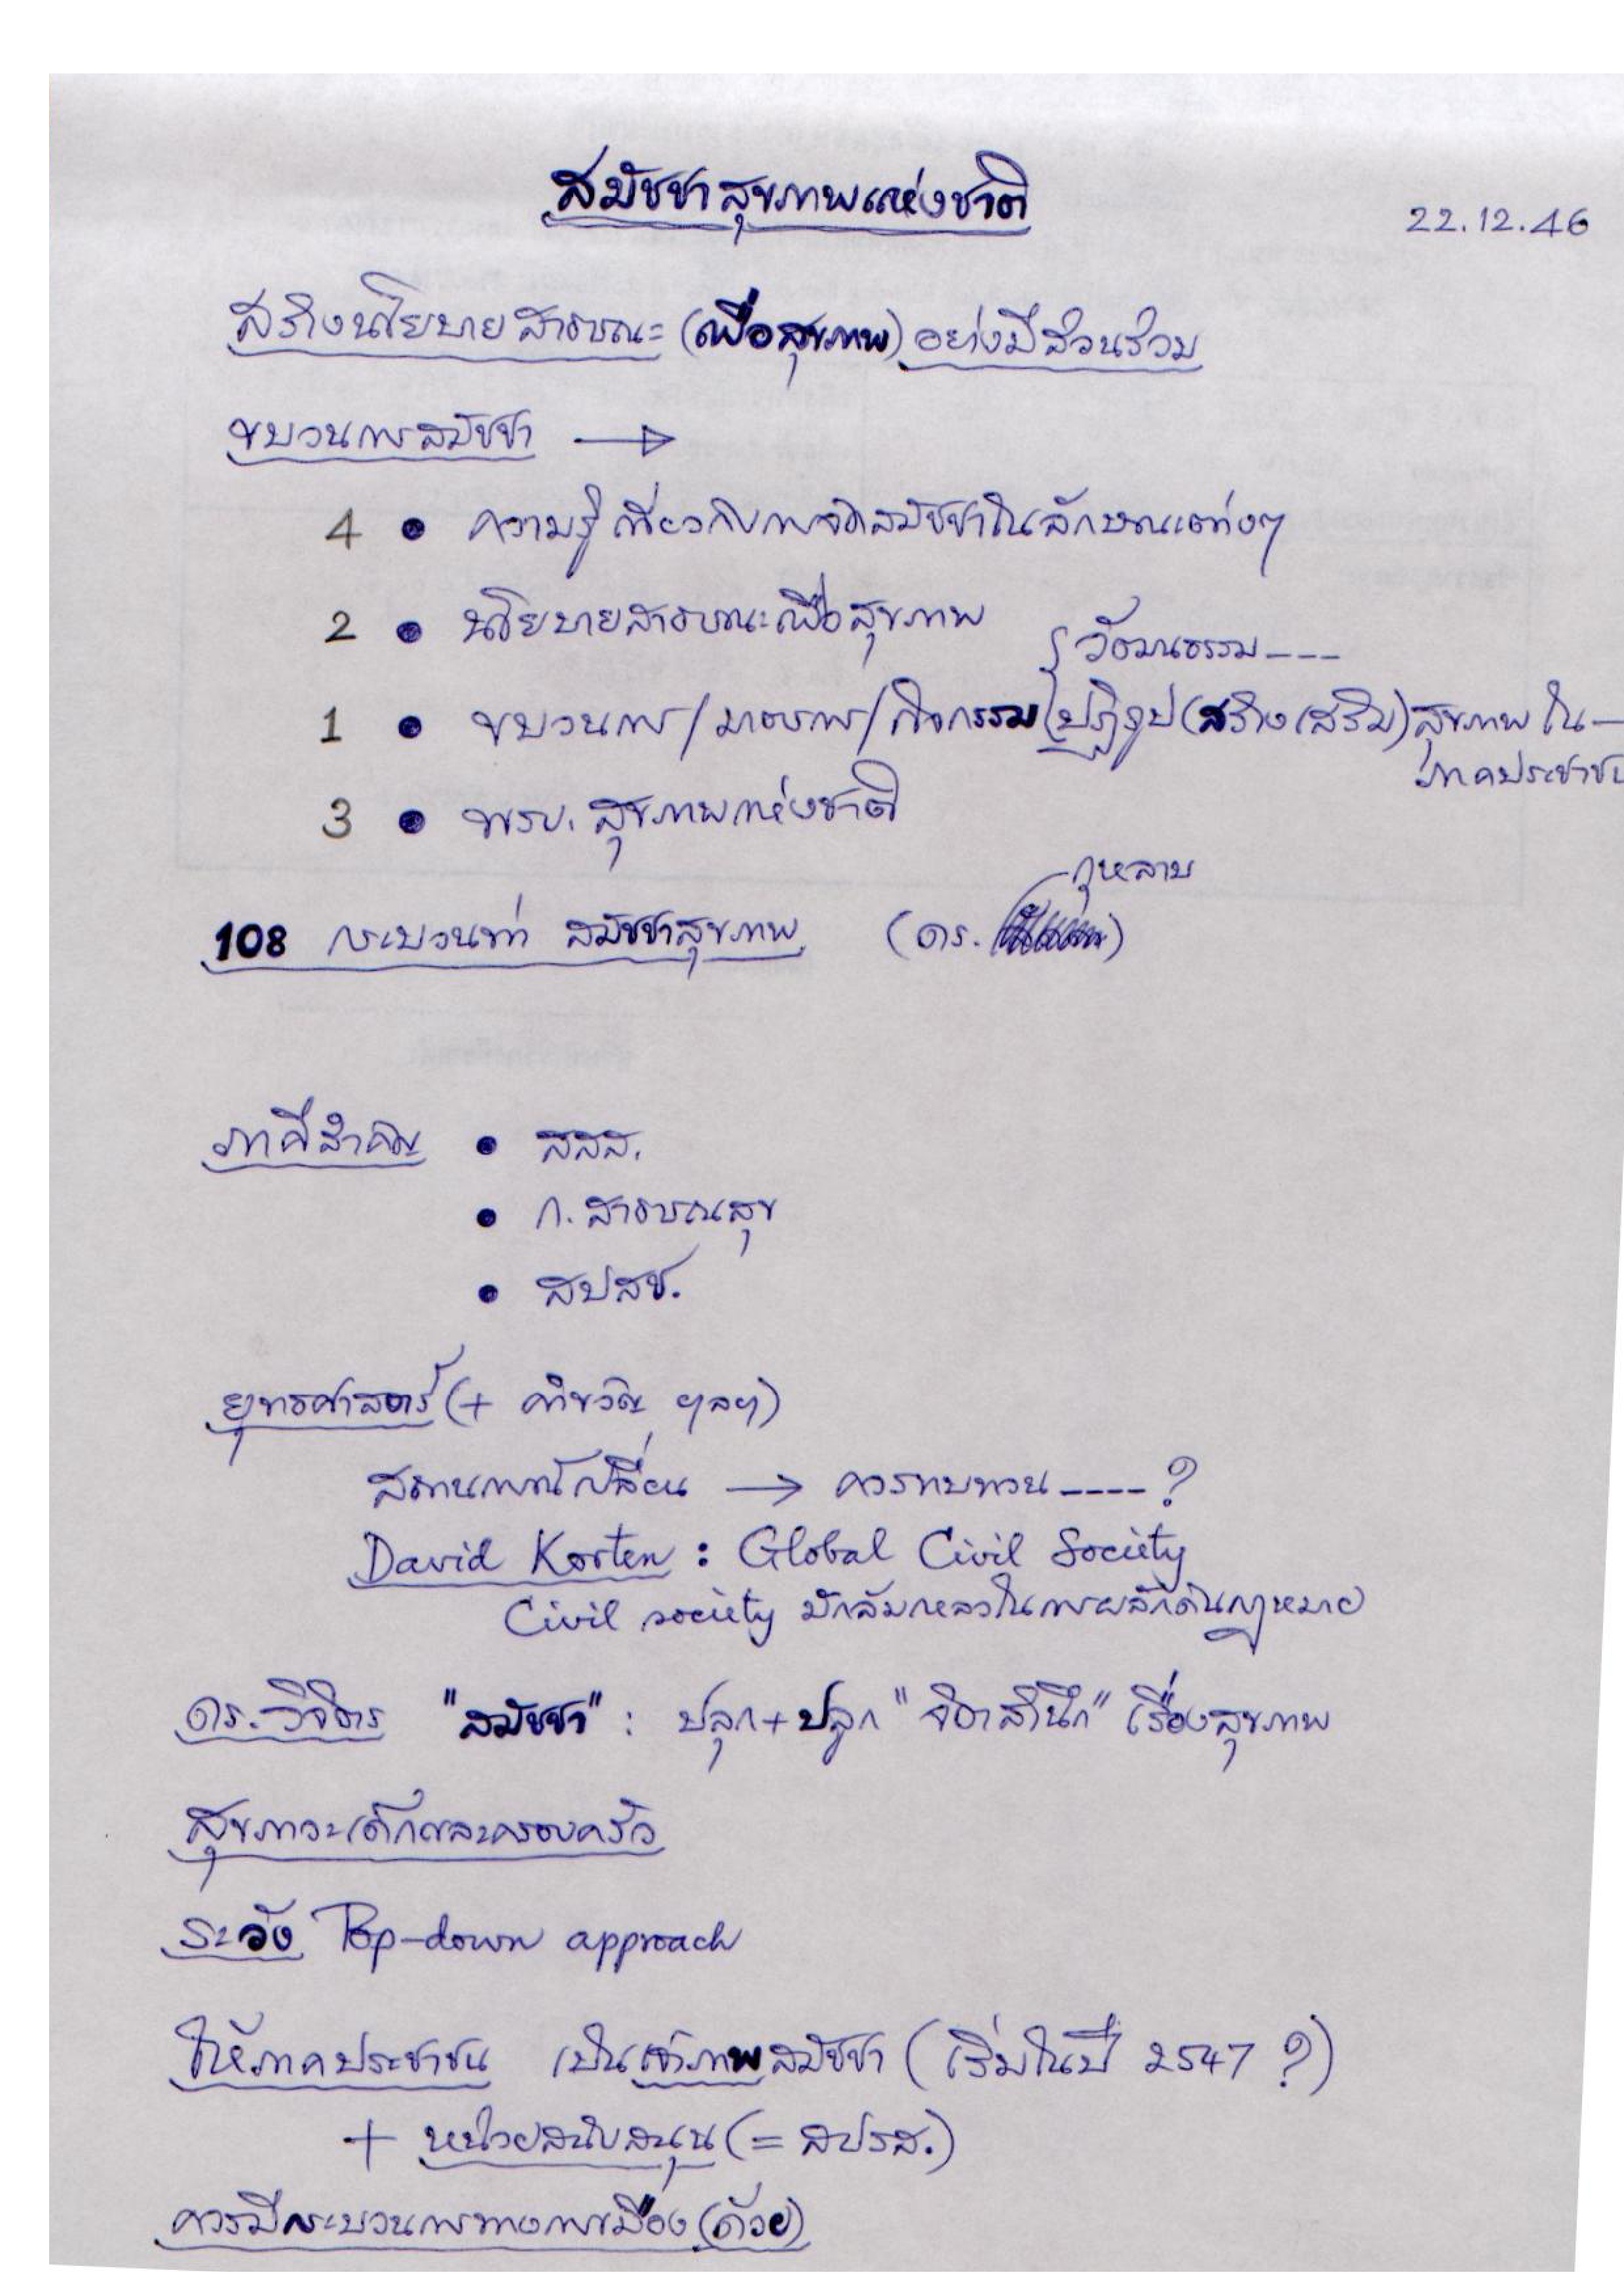 สมัชชาสุขภาพแห่งชาติ
22.12.46
สร้างนโยบายสาธารณะ (เพื่อสุขภาพ) อย่างมีส่วนร่วม
ขบวนการสมัชชา →
4 • ความรู้เกี่ยวกับการจัดสมัชชาในลักษณะต่างๆ
2 • นโยบายสาธารณะเพื่อสุขภาพ
วัฒนธรรม ---
1 • ขบวนการ/มาตรการ/กิจกรรม ปฏิรูป (สร้างเสริม) สุขภาพ ใน
ภาคประชาชน
3 • พรบ. สุขภาพแห่งชาติ
กุหลาบ
108 กระบวนท่า สมัชชาสุขภาพ (ดร. )
ภาคีสำคัญ • สสส.
• ก. สาธารณสุข
• สปสช.
ยุทธศาสตร์ (+ คำขวัญ ฯลฯ)
สถานการณ์เปลี่ยน → ควรทบทวน ----?
David Korten : Global Civil Society
Civil society มักล้มเหลวในการผลักดันกฎหมาย
ดร. วิจิตร "สมัชชา" : ปลุก + ปลูก "จิตสำนึก" เรื่องสุขภาพ
สุขภาวะเด็กและครอบครัว
ระวัง Top-down approach
ให้ภาคประชาชน เป็นเจ้าภาพสมัชชา (เริ่มในปี 2547 ?)
+ หน่วยสนับสนุน (= สปรส.)
ควรมีกระบวนการทางการเมือง (ด้วย)